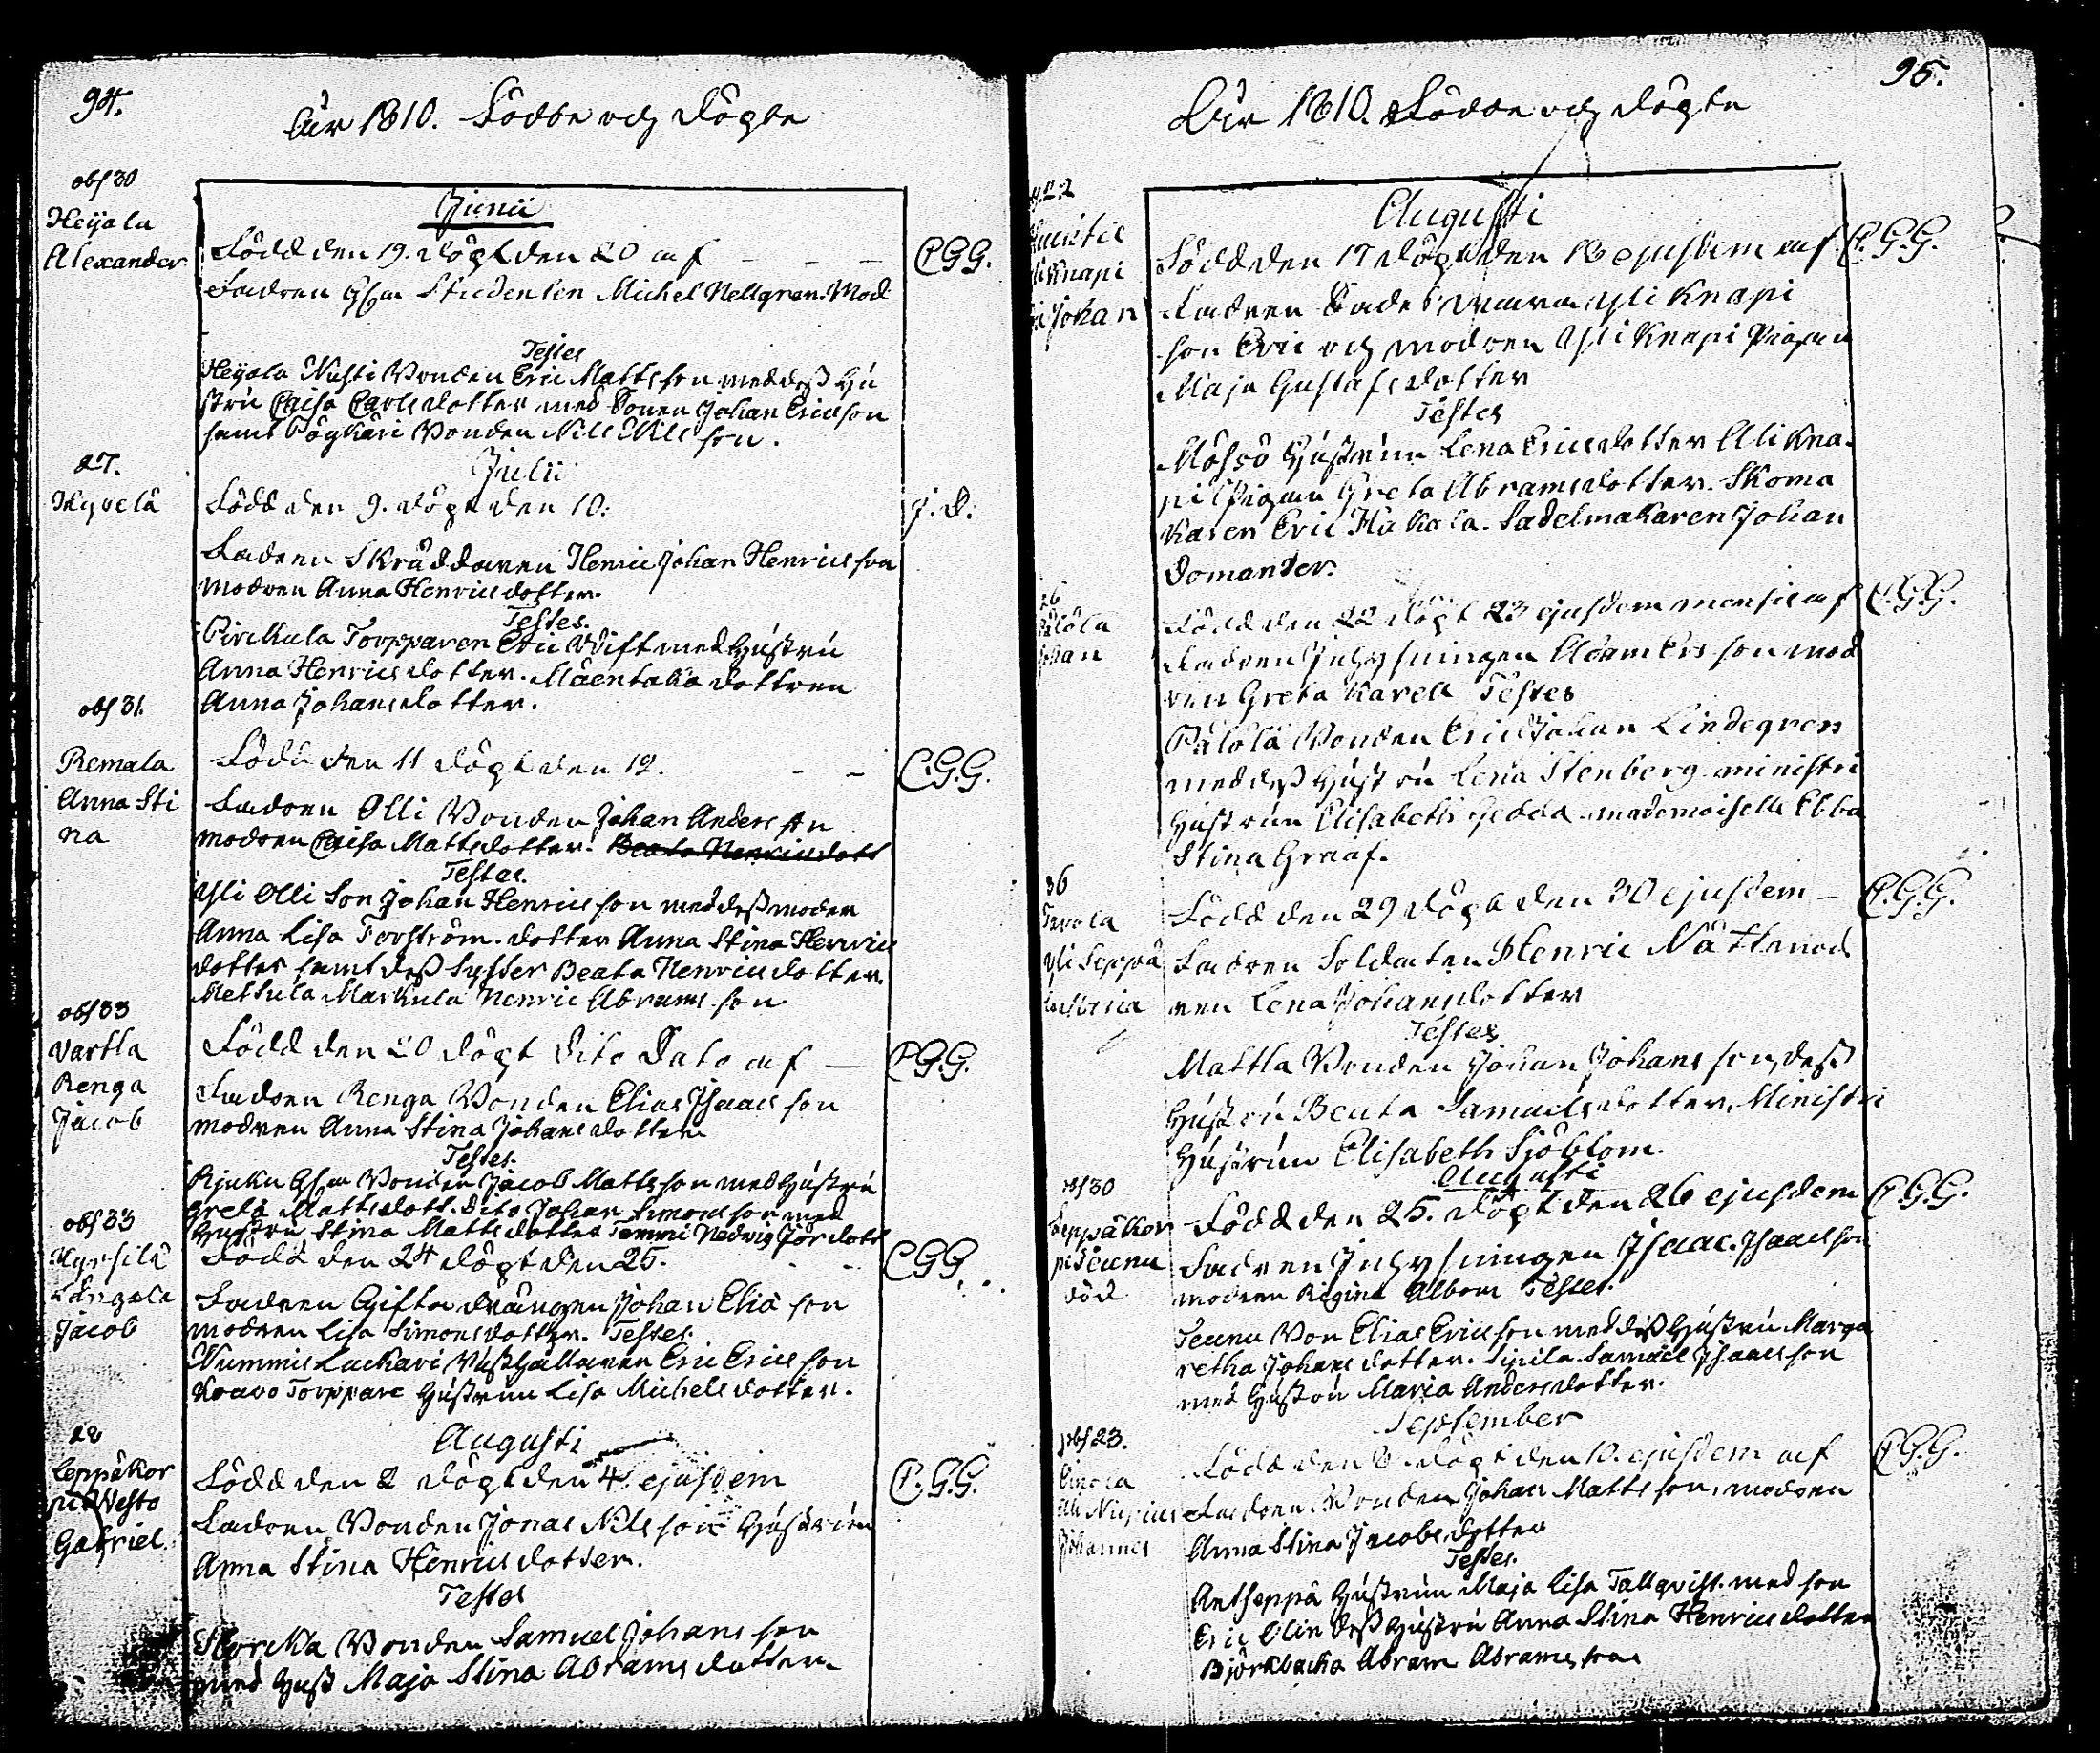 94.
År 1810. Födde och Döpte
obs 30
Heijala
Alexander
Junii
Född den 19. döpt den 20 af
C.G.G.
Fadren Studenten Michel Nellgren. Mod
Testes
Heijala Nusti Bonden Eric Mattsson med dess Hu
stru Caisa Carlsdotter med Sonen Johan Ericsson
samt Bonden Nils Nilsson.
27.
Julii
Född den 9. döpt den 10.
J. D.
Fadren Skräddaren Henric Johan Henricsson
modren Anna Henricsdotter.
Testes.
Pirckula Torpparen Eric Wift med Hustru
Anna Henricsdotter. Mäentaka dottren
Anna Johansdotter.
obs 31.
Remala
Anna Sti
na
Född den 11 döpt den 12.
C.G.G.
Fadren Olli Bonden Johan Andersson
modren Caisa Mattsdotter. Beata Henricsdott
Testes.
Yli Olli Son Johan Henricsson med dess moder
Anna Lisa Forsström. dotter Anna Stina Henrics
dotter samt dess Syster Beata Henricsdotter.
Mettula Markula Henric Abramsson
obs 33
Vartla
Renga
Jacob
Född den 20 döpt dito Dato af
C.G.G.
Fadren Renga Bonden Elias Isaacsson
modren Anna Stina Johansdotter
Testes.
Bonden Jacob Mattsson med Hustru
Greta Mattsdott. Dito Johan Simonsson med
Hustru Stina Mattsdotter Temmi Hedvig Jör dott
obs 33
Kyrsilä
Jacob
Född den 24 döpt den 25.
C.G.G.
Fadren Gifta drängen Johan Eliasson
modren Lisa Simonsdotter. Testes.
Nummis Luckari Husshållaren Eric Ericsson
Torppare Hustrun Lisa Michelsdotter.
28
Leppäkor
pi Westo
Gabriel.
Augusti
Född den 2 döpt den 4. ejusdem
C.G.G.
Fadren Bonden Jonas Nilsson Hustrun
Anna Stina Henricsdotter.
Testes
Bonden Samuel Johansson
med Hust Maja Stina Abramsdotter.
95.
År 1810. Födde och Döpte
Yli Knapi
Johan
Augusti
Född den 17 döpt den 18 ejusdem af
C.G.G.
Fadren Yli Knapi
son Eric och modren Yli Knapi Pigan
Maja Gustafsdotter
Testes
Hustrun Lena Ericsdotter Ali Kna
pi Pigan Greta Abramsdotter. Skoma
karen Eric Hakala. Sadelmakaren Johan
Domander.
26
Pälölä
Johan
Född den 22 döpt 23 ejusdem mensis af
C.G.G.
Fadren Inhysingen Adam Ersson mod
ren Greta Karell Testes
Pälölä Bonden Eric Johan Lindegren
med dess Hustru Lena Stenberg ministri
Hustrun Elisabeth Gedda mademoiselle Ebba
Stina Graaf.
36
Yli Seppä
Född den 29 döpt den 30 ejusdem
C.G.G.
Fadren Soldaten Henric Nätt mod
ren Lena Johansdotter
Testes
Mattla Bonden Johan Johansson, dess
Hustru Beata Samuelsdotter, Ministri
Hustrun Elisabeth Sjöblom.
obs 30
Leppäkor
pi Teunu
död
Augusti
Född den 25. döpt den 26 ejusdem
C.G.G.
Fadren Inhysingen Isaac Isaacsson
modren Rigina Albom Testes.
Teunu Bon Elias Ericsson med dess Hustru Marga
retha Johansdotter. Sipila Samuel Isaacsson
med Hustru Maria Andersdotter.
obs 23.
Johannes
September
Född den 8 döpt den 10. ejusdem af
C.G.G.
Fadren Bonden Johan Mattsson, modren
Anna Stina Jacobsdotter
Testes.
Antseppä Hustrun Maja Lisa Tallqvist. med son
Eric Olin dess Hustru Anna Stina Henricsdotter
Björkbacka Abram Abramsson